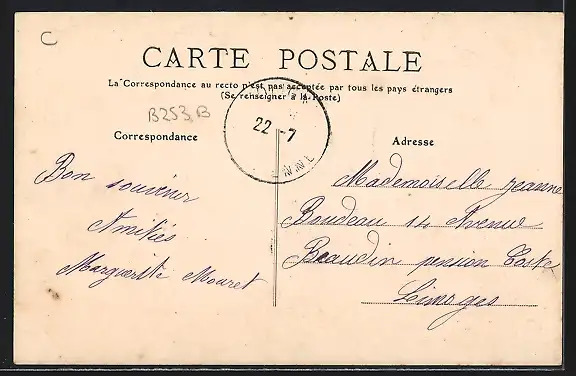 C
CARTE POSTALE
La Correspondance au recto n'est pas acceptée par tous les pays étrangers
(Se renseigner à la Poste)
B253,B
22 -7
Correspondance
Adresse
Bon souvenir
Amitiés
Marguerite Mouret
Mademoiselle Jeanne
Boudeau 14 Avenue
Beaudin pension Coste
Limoges